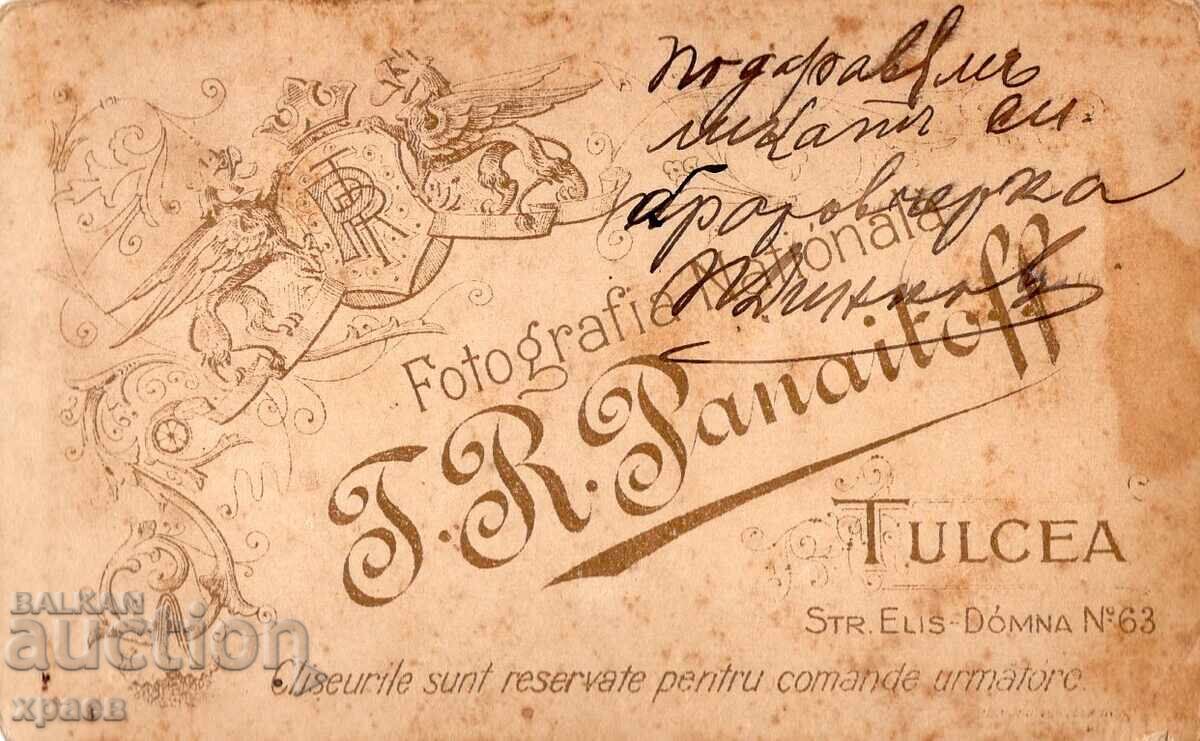 подаравямъ
ликатъ си
братовчерка
Fotografia Nationala
T. R. Panaitoff
TULCEA
STR. ELIS-DÓMNA No 63
Clișeurile sunt reservate pentru comande următóre.
BALKAN
auction
храев